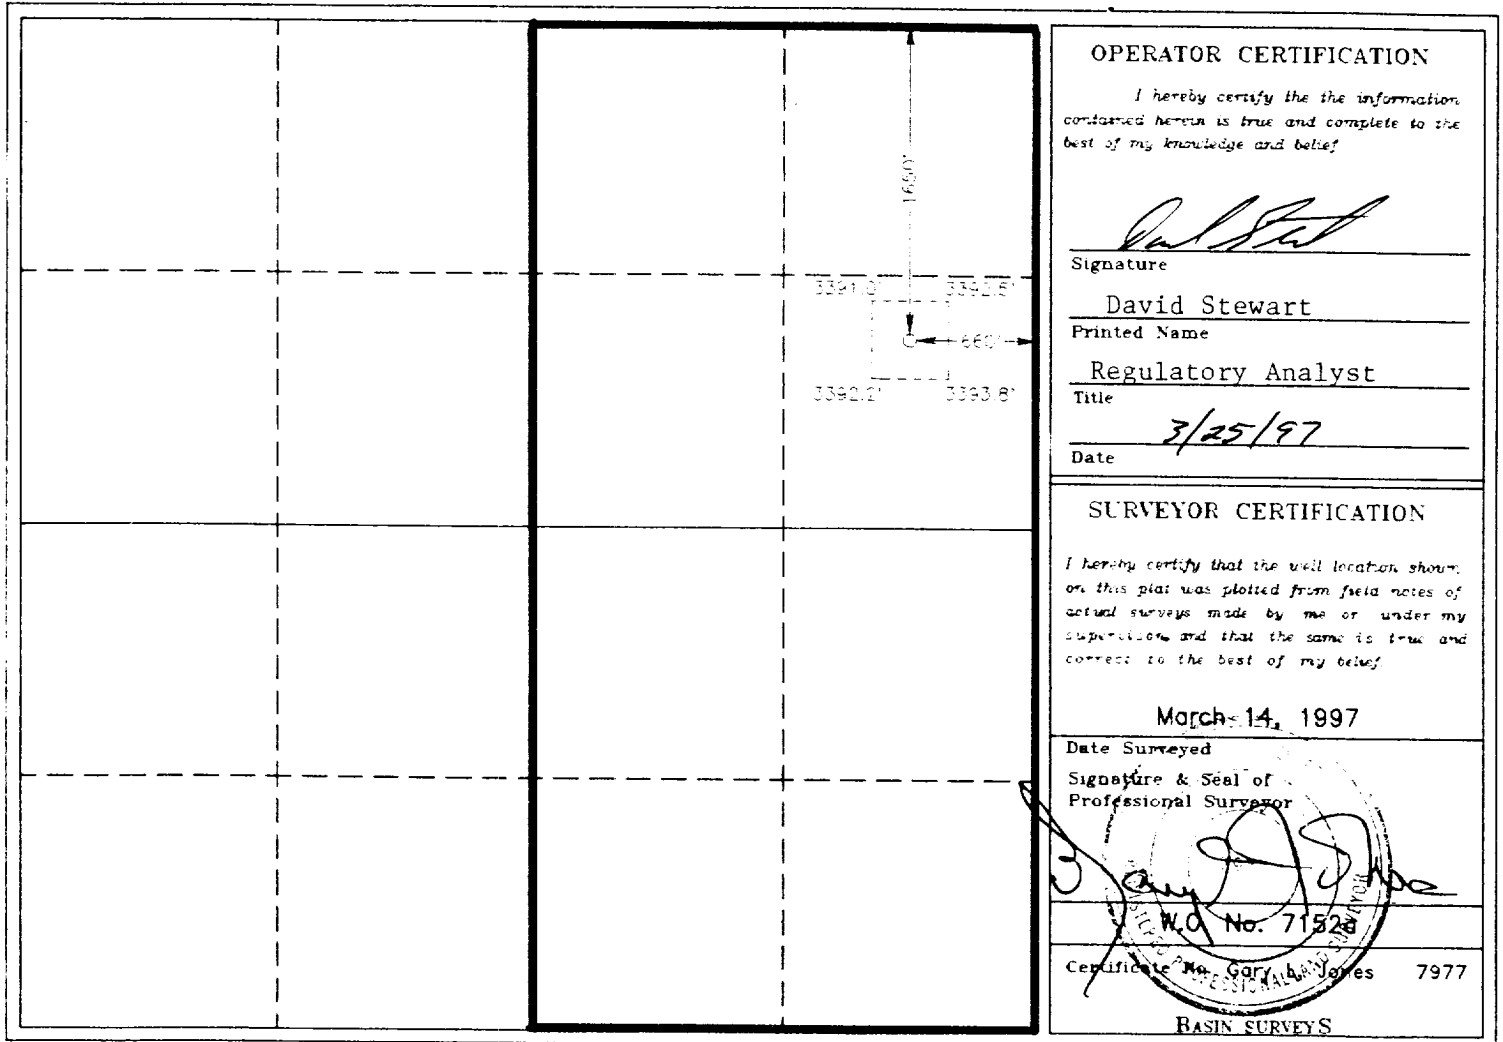 1650'
3391.0' 3392.5'
660'
3392.2' 3393.8'
OPERATOR CERTIFICATION
I hereby certify the the information
contained herein is true and complete to the
best of my knowledge and belief
Signature
David Stewart
Printed Name
Regulatory Analyst
Title
3/25/97
Date
SURVEYOR CERTIFICATION
I hereby certify that the well location shown
on this plat was plotted from field notes of
actual surveys made by me or under my
supervison, and that the same is true and
correct to the best of my belief.
March 14, 1997
Date Surveyed
Signature & Seal of
Professional Surveyor
W.O. No. 7152a
Certificate No. Gary L. Jones 7977
PROFESSIONAL LAND SURVEYOR
BASIN SURVEYS